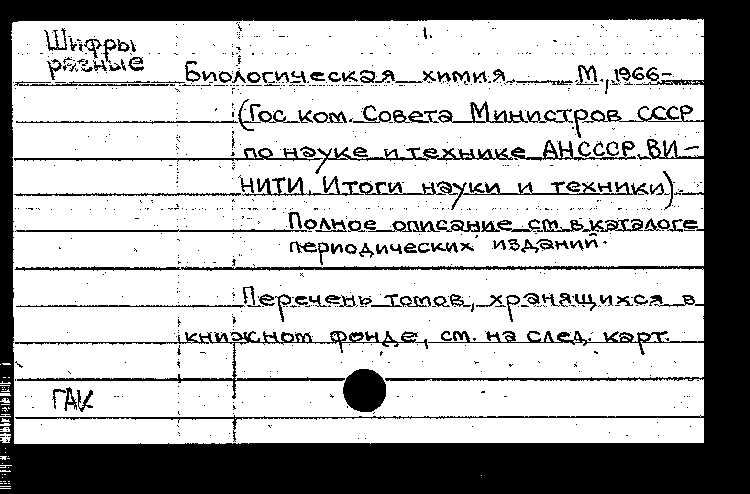 1.
Шифры
разные
Биологическая химия М., 1966-
(Гос ком. Совета Министров СССР
по науке и технике АНСССР. ВИ-
НИТИ. Итоги науки и техники).
Полное описание см. в каталоге
периодических изданий.
Перечень томов, хранящихся в
книжном фонде, см. на след. карт.
ГАК